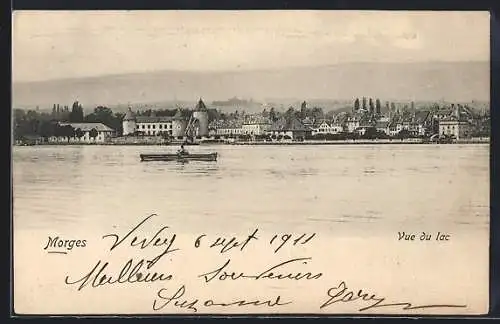 Morges
Vue du lac
Vevey 6 sept 1911
Meilleurs Souvenirs
Suzanne Gary